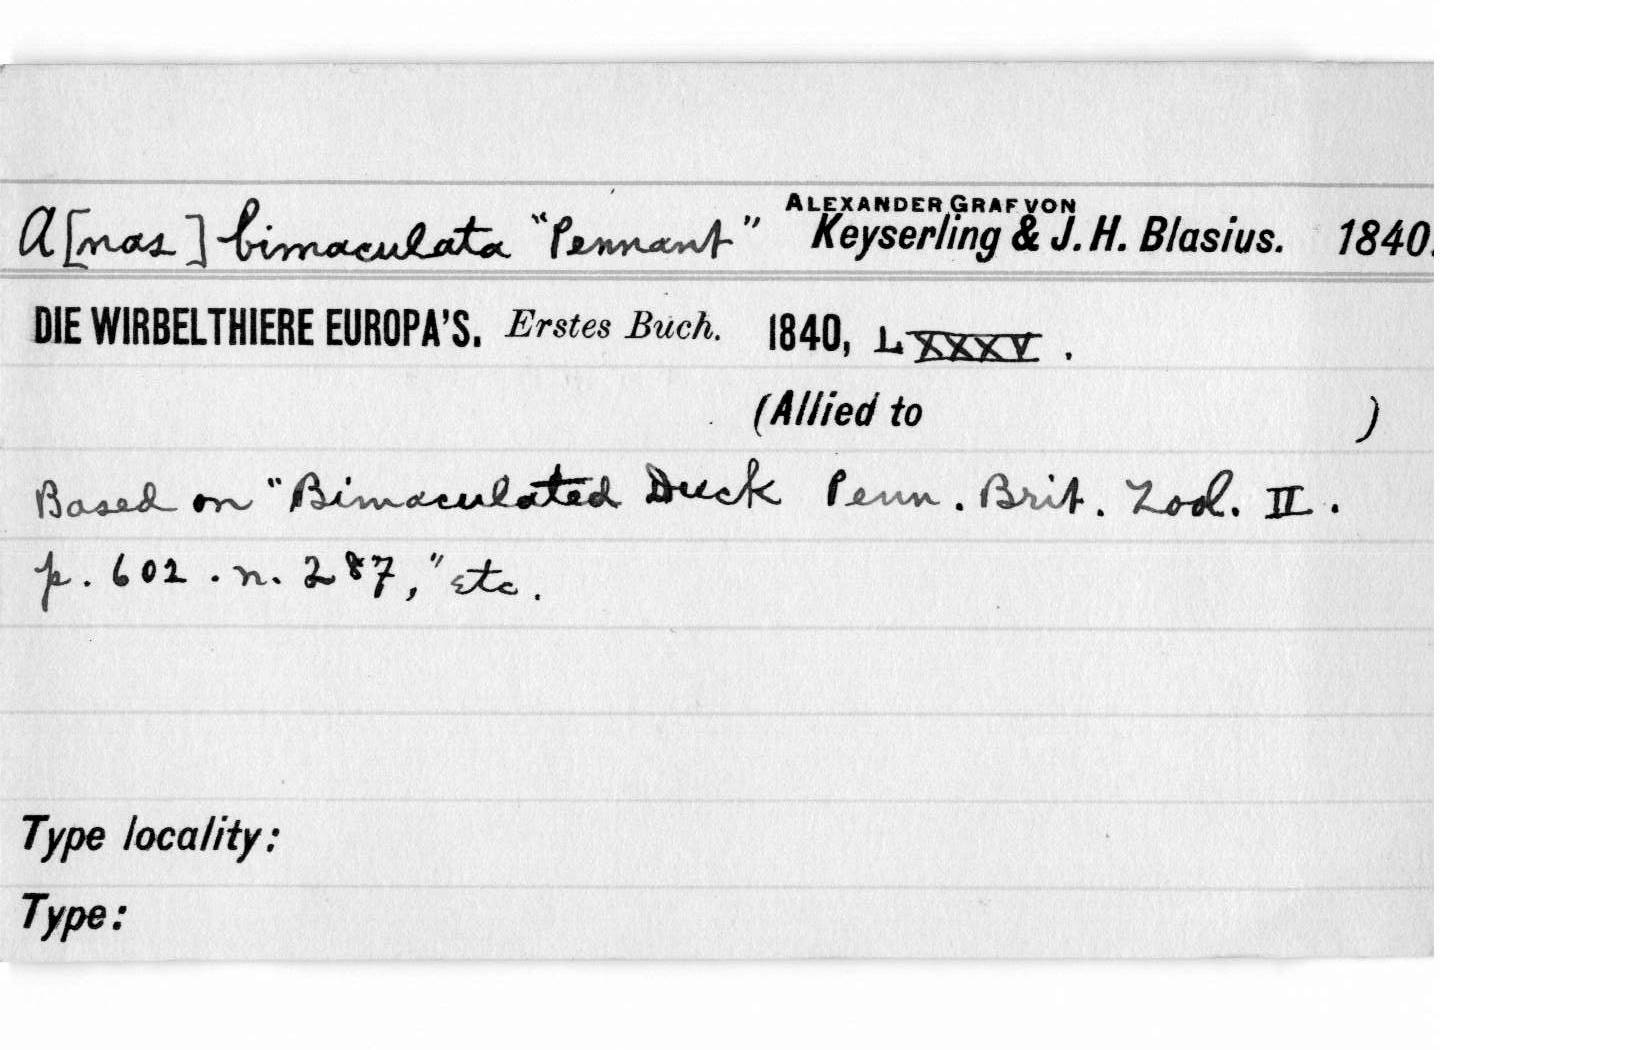 A[nas] bimaculata "Pennant" ALEXANDER GRAF VON Keyserling & J. H. Blasius. 1840.
DIE WIRBELTHIERE EUROPA'S. Erstes Buch. 1840, LXXXV.
(Allied to )
Based on "Bimaculated Duck Penn. Brit. Zool. II.
p. 602. n. 287," etc.
Type locality:
Type: